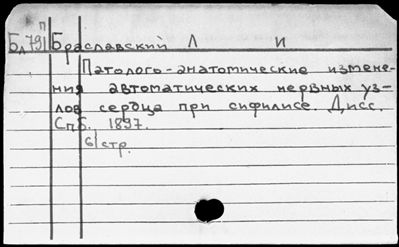 П
Бл 791 Браславский Л И
Патолого-анатомические измене-
ния автоматических нервных уз-
лов сердца при сифилисе. Дисс.
Спб., 1897.
61 стр.